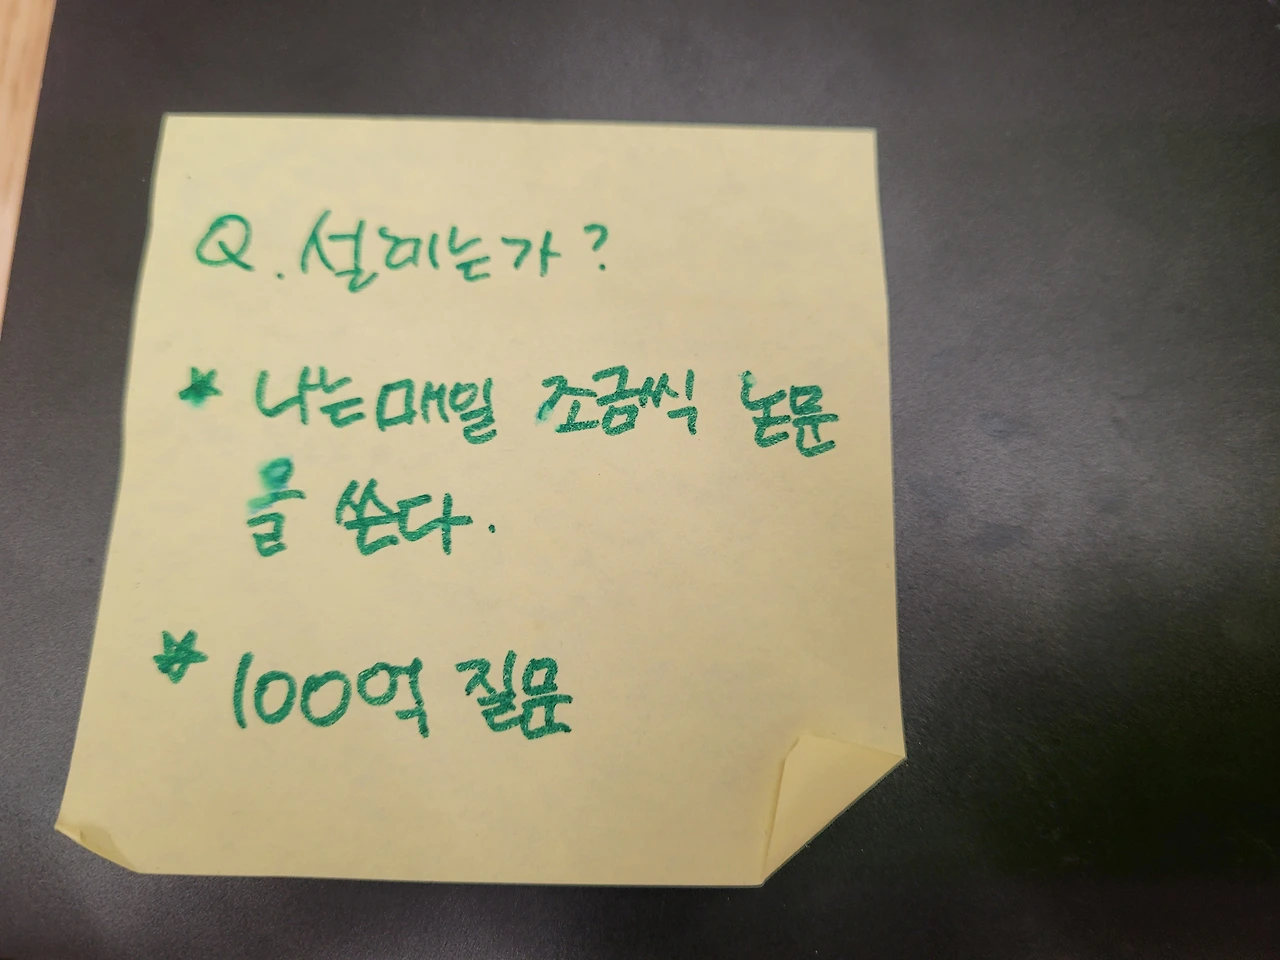 Q. 설레는가?
* 나는 매일 조금씩 논문
을 쓴다.
* 100억 질문